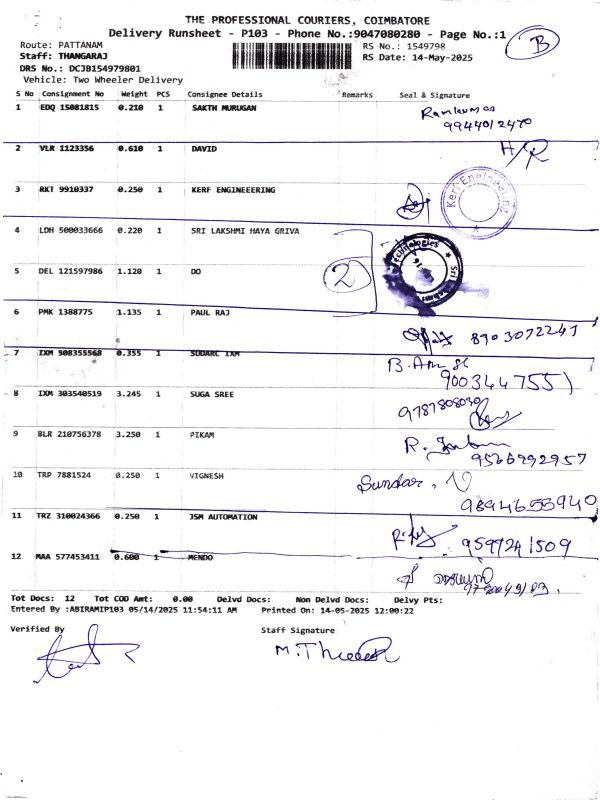 THE PROFESSIONAL COURIERS, COIMBATORE
Delivery Runsheet - P103 - Phone No.:9047080280 - Page No.:1
B
Route: PATTANAM
RS No.: 1549798
Staff: THANGARAJ
RS Date: 14-May-2025
DRS No.: DCJB154979801
Vehicle: Two Wheeler Delivery
S No Consignment No Weight PCS Consignee Details Remarks Seal & Signature
1 EDQ 15081815 0.210 1 SAKTH MURUGAN
9944012470
2 VLR 1123356 0.610 1 DAVID H/R
3 RKT 9910337 0.250 1 KERF ENGINEEERING
Kerf Engineering
4 LDH 500033666 0.220 1 SRI LAKSHMI HAYA GRIVA
5 DEL 121597986 1.120 1 DO 2
6 PMK 1388775 1.135 1 PAUL RAJ
8903072241
7 IXM 508355568 0.355 1 SUDARC IXM
9003447551
8 IXM 303540519 3.245 1 SUGA SREE
9787808030
9 BLR 210756378 3.250 1 PIKAM
9566992957
10 TRP 7881524 0.250 1 VIGNESH Sundar. V
9894655940
11 TRZ 310024366 0.250 1 JSM AUTOMATION
9597241509
12 MAA 577453411 0.600 1 MENDO
Tot Docs: 12 Tot COD Amt: 0.00 Delvd Docs: Non Delvd Docs: Delvy Pts:
Entered By :ABIRAMIP103 05/14/2025 11:54:11 AM Printed On: 14-05-2025 12:00:22
Verified By Staff Signature